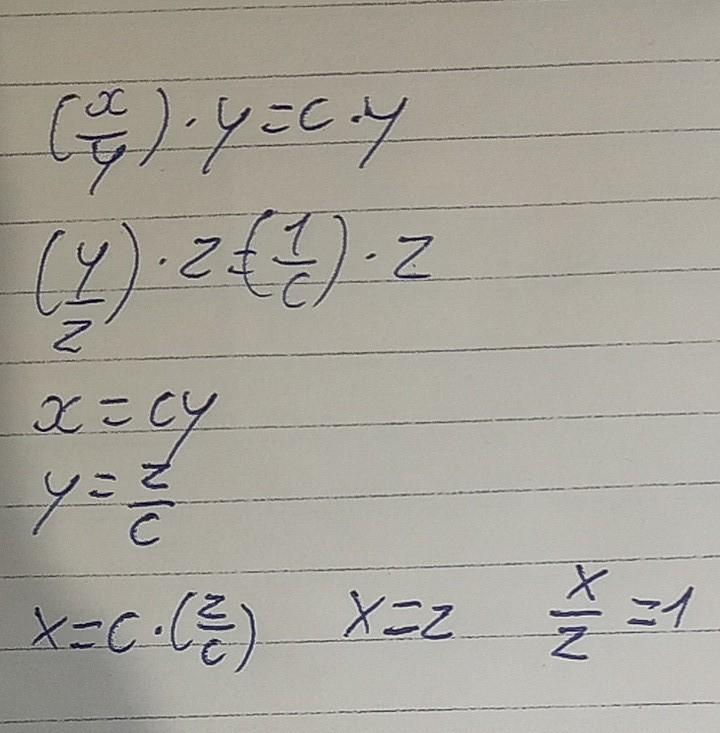 (x/y) · y = c · y
(y/z) · z = (1/c) · z
x = cy
y = z/c
x = c · (z/c) x = z x/z = 1